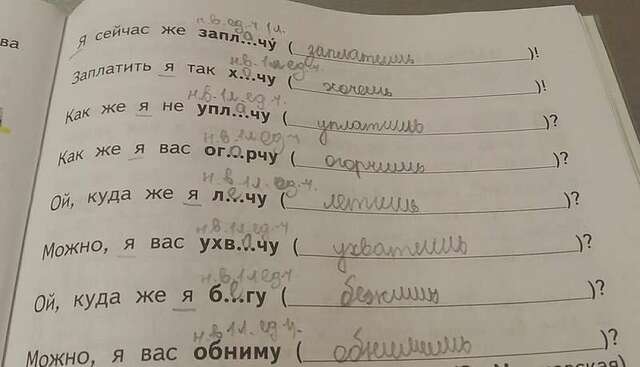 ва
н.в.ед.ч 1л.
Я сейчас же запл...чу (заплатишь)!
н.в.1л ед.ч.
Заплатить я так х...чу (хочешь)!
н.в.1л.ед.ч.
Как же я не упл...чу (уплатишь)?
н.в 1л ед.ч
Как же я вас ог...рчу (огорчишь)?
н.в.1л.ед.ч.
Ой, куда же я л...чу (летишь)?
н.в.1л.ед.ч
Можно, я вас ухв...чу (ухватишь)?
н.в.1л ед.ч
Ой, куда же я б...гу (бежишь)?
н.в 1л. ед.ч.
Можно, я вас обниму (обнимешь)?